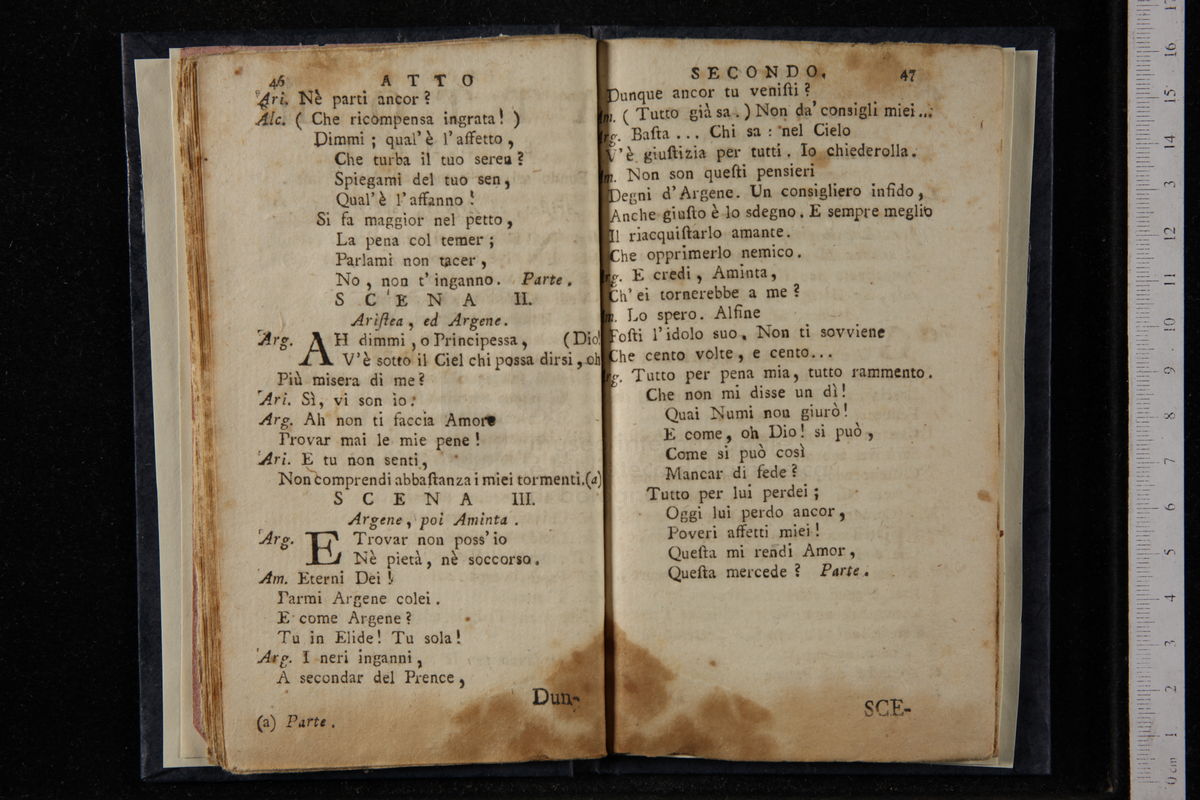 46 ATTO
Ari. Nè parti ancor?
Alc. ( Che ricompensa ingrata! )
Dimmi; qual'è l'affetto,
Che turba il tuo seren?
Spiegami del tuo sen,
Qual'è l'affanno!
Si fa maggior nel petto,
La pena col temer;
Parlami non tacer,
No, non t'inganno. Parte.
SCENA II.
Ariſtea, ed Argene.
Arg. AH dimmi, o Principessa, (Dio!
V'è sotto il Ciel chi possa dirsi, oh
Più misera di me?
Ari. Sì, vi son io.
Arg. Ah non ti faccia Amore
Provar mai le mie pene!
Ari. E tu non senti,
Non comprendi abbaſtanza i miei tormenti. (a)
SCENA III.
Argene, poi Aminta.
Arg. E Trovar non poss'io
Nè pietà, nè soccorso.
Am. Eterni Dei!
Parmi Argene colei.
E come Argene?
Tu in Elide! Tu sola!
Arg. I neri inganni,
A secondar del Prence,
Dun-
(a) Parte.
SECONDO. 47
Dunque ancor tu veniſti?
m. ( Tutto già sa. ) Non da' consigli miei...
rg. Baſta... Chi sa: nel Cielo
V'è giuſtizia per tutti. Io chiederolla.
m. Non son queſti pensieri
Degni d'Argene. Un consigliero infido,
Anche giuſto è lo sdegno. E sempre meglio
Il riacquiſtarlo amante.
Che opprimerlo nemico.
rg. E credi, Aminta,
Ch'ei tornerebbe a me?
m. Lo spero. Alfine
Foſti l'idolo suo. Non ti sovviene
Che cento volte, e cento...
rg. Tutto per pena mia, tutto rammento.
Che non mi disse un dì!
Quai Numi non giurò!
E come, oh Dio! si può,
Come si può così
Mancar di fede?
Tutto per lui perdei;
Oggi lui perdo ancor,
Poveri affetti miei!
Queſta mi rendi Amor,
Queſta mercede? Parte.
SCE-